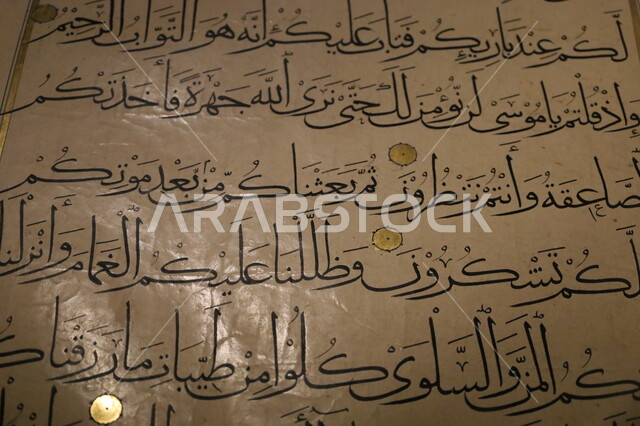 لَّكُمْ عِندَ بَارِئِكُمْ فَتَابَ عَلَيْكُمْ إِنَّهُ هُوَ التَّوَّابُ الرَّحِيمُ
وَإِذْ قُلْتُمْ يَا مُوسَى لَن نُّؤْمِنَ لَكَ حَتَّى نَرَى اللَّهَ جَهْرَةً فَأَخَذَتْكُمُ
الصَّاعِقَةُ وَأَنتُمْ تَنظُرُونَ ثُمَّ بَعَثْنَاكُم مِّن بَعْدِ مَوْتِكُمْ
ARABSTOCK
لَعَلَّكُمْ تَشْكُرُونَ وَظَلَّلْنَا عَلَيْكُمُ الْغَمَامَ وَأَنزَلْنَا
عَلَيْكُمُ الْمَنَّ وَالسَّلْوَى كُلُوا مِن طَيِّبَاتِ مَا رَزَقْنَاكُمْ